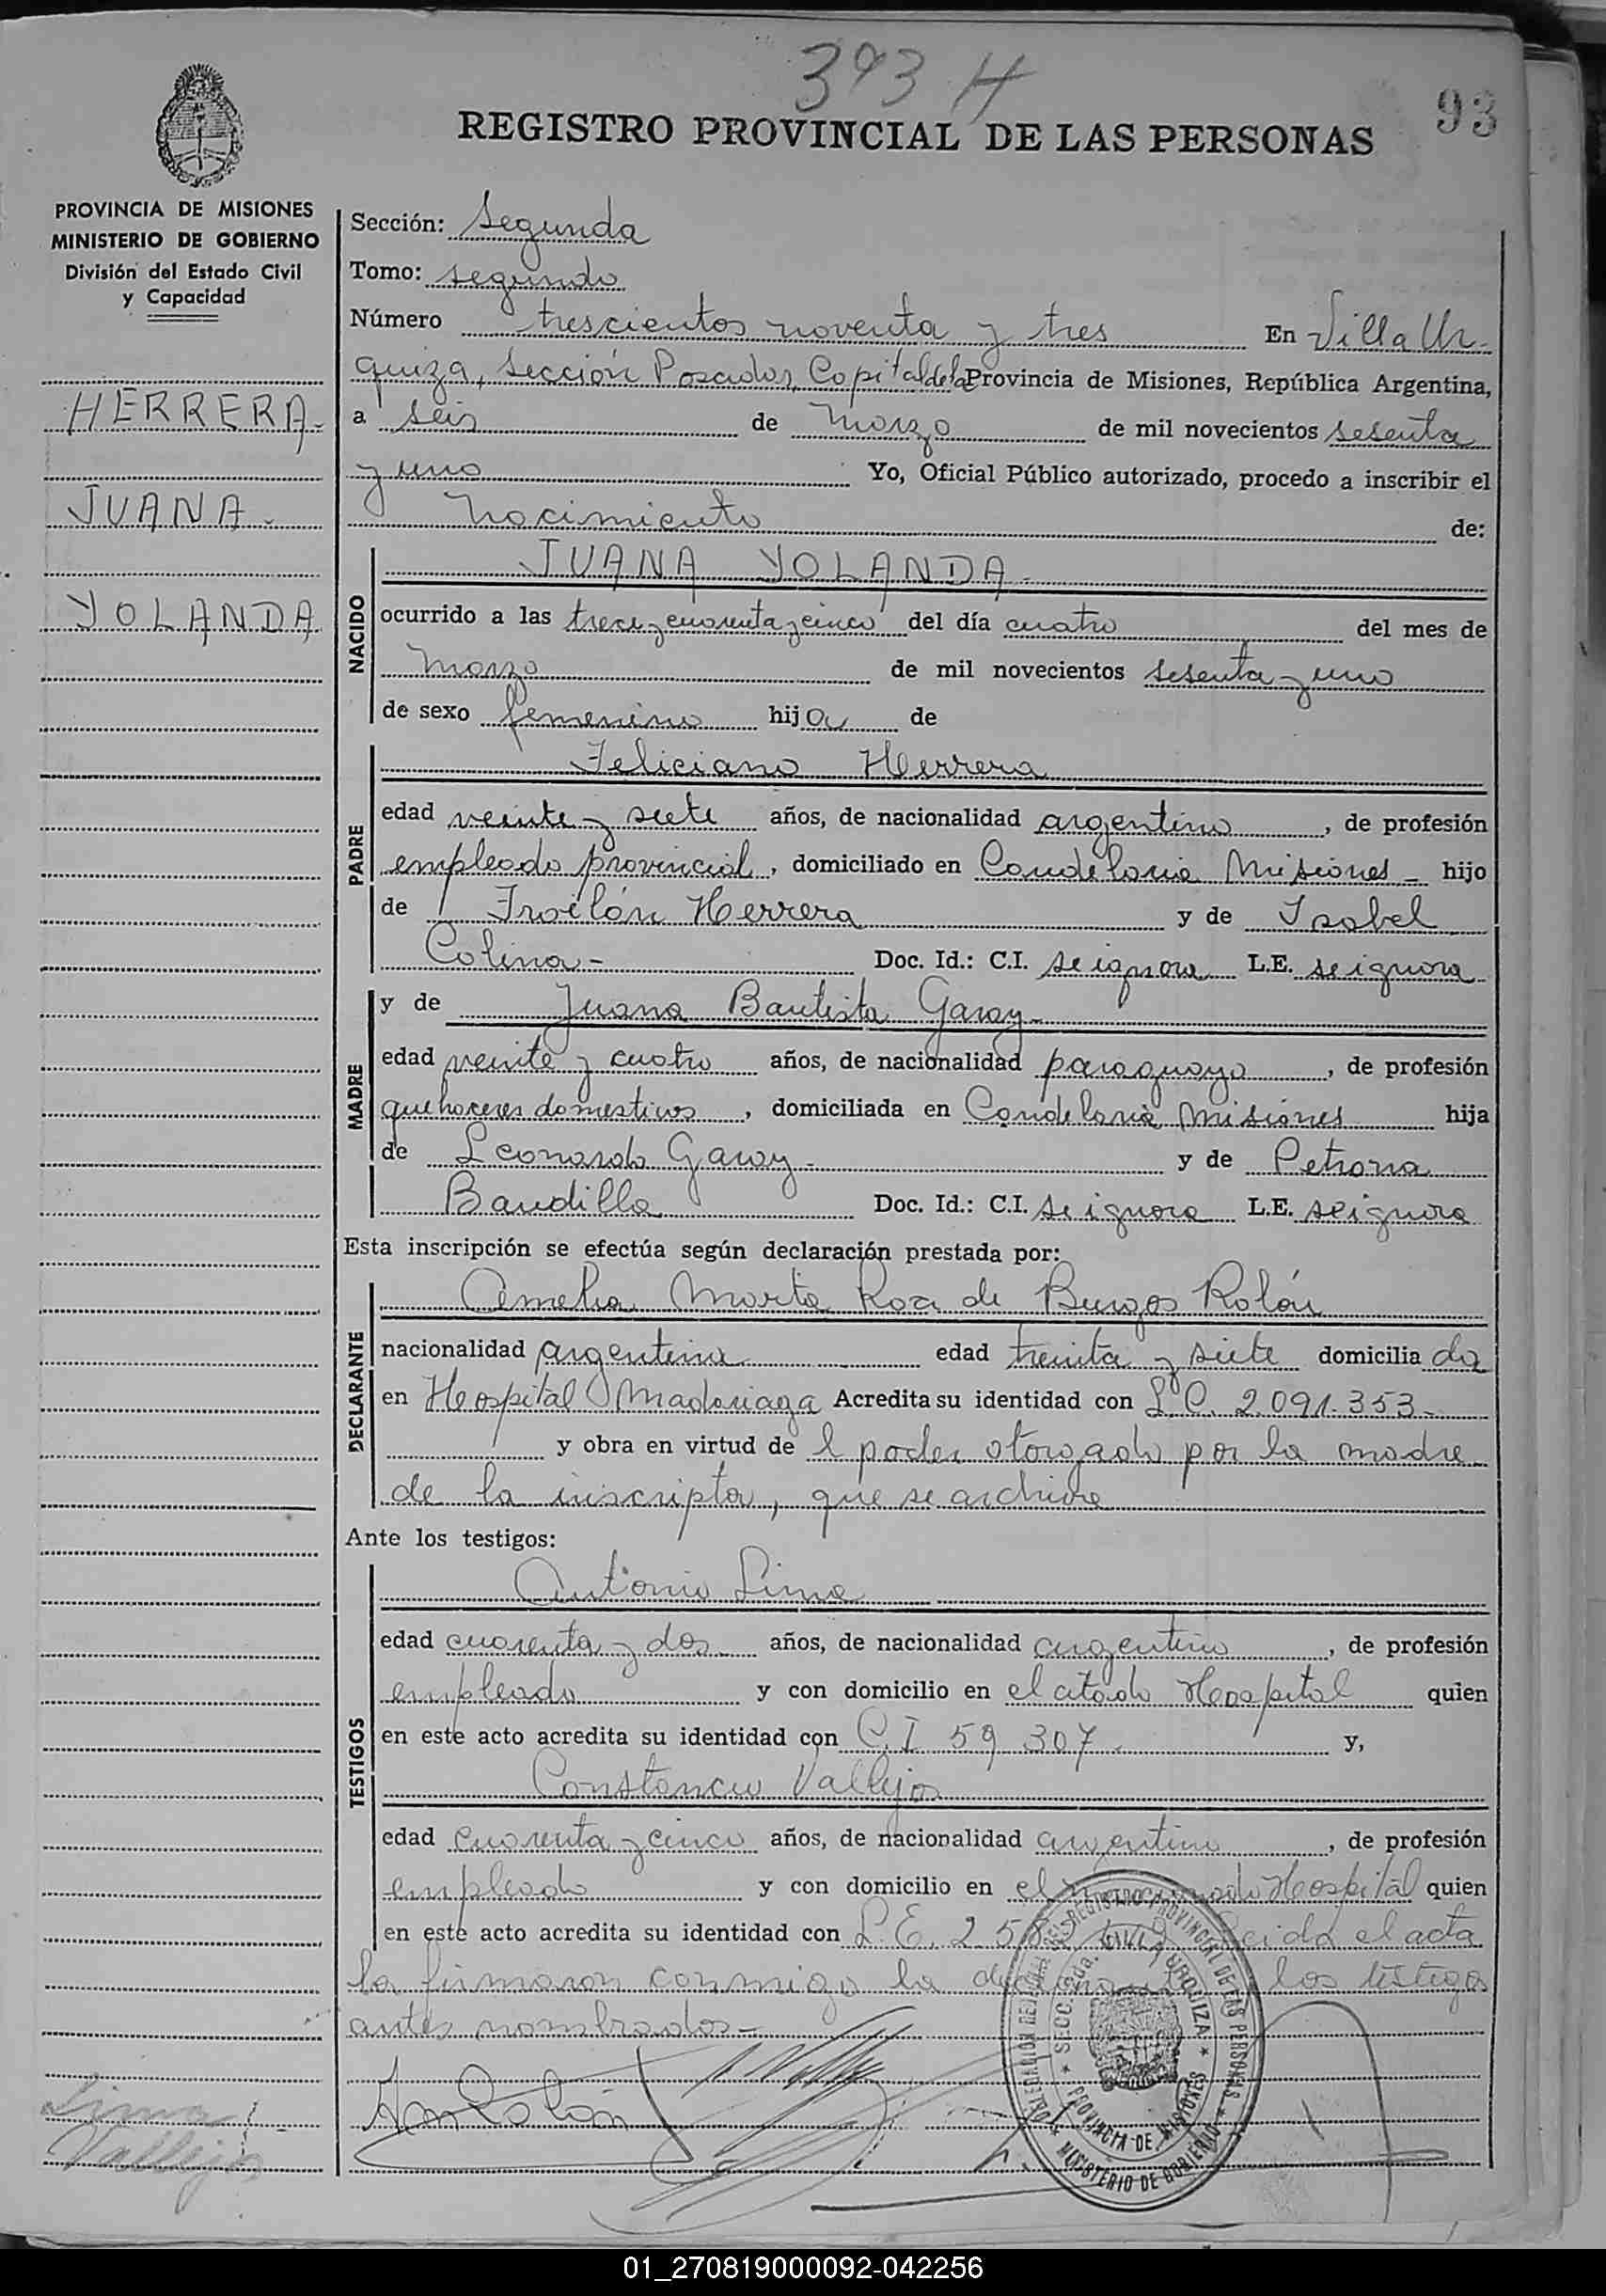 393 H
93
REGISTRO PROVINCIAL DE LAS PERSONAS
PROVINCIA DE MISIONES
MINISTERIO DE GOBIERNO
División del Estado Civil
y Capacidad
HERRERA
JUANA
YOLANDA
Sección: Segunda
Tomo: segundo
Número trescientos noventa y tres En Villa Ur-
quiza, Sección Posadas, Capital de la Provincia de Misiones, República Argentina,
a seis de marzo de mil novecientos sesenta
y uno Yo, Oficial Público autorizado, procedo a inscribir el
nacimiento de:
NACIDO
JUANA YOLANDA
ocurrido a las trece y cuarenta y cinco del día cuatro del mes de
marzo de mil novecientos sesenta y uno
de sexo femenino hija de
PADRE
Feliciano Herrera
edad veinte y siete años, de nacionalidad argentino, de profesión
empleado provincial, domiciliado en Candelaria Misiones hijo
de Troilán Herrera y de Isabel
Colina- Doc. Id.: C.I. se ignora L.E. se ignora
MADRE
y de Juana Bautista Garay-
edad veinte y cuatro años, de nacionalidad paraguaya, de profesión
quehaceres domesticos, domiciliada en Candelaria Misiones hija
de Leonardo Garay- y de Petrona
Baudilla Doc. Id.: C.I. se ignora L.E. se ignora
Esta inscripción se efectúa según declaración prestada por:
DECLARANTE
Amelia Marta Roa de Burgos Rolón
nacionalidad argentina edad treinta y siete domiciliada
en Hospital Madariaga Acredita su identidad con L.C. 2.091.353-
y obra en virtud del poder otorgado por la madre
de la inscripta, que se archiva
Ante los testigos:
TESTIGOS
Antonio Lima
edad cuarenta y dos años, de nacionalidad argentino, de profesión
empleado y con domicilio en el citado Hospital quien
en este acto acredita su identidad con C.I 59 307 y,
Constancio Vallejos
edad cuarenta y cinco años, de nacionalidad argentino, de profesión
empleado y con domicilio en el mencionado Hospital quien
en este acto acredita su identidad con L.E. 2.5 el acta
la firmaron conmigo la declarante los testigos
antes nombrados-
DELEGACION DEL REGISTRO PROVINCIAL DE LAS PERSONAS
SECC. 2da. VILLA URQUIZA
PROVINCIA DE MISIONES
MINISTERIO DE GOBIERNO
Lima
Vallejos
01_270819000092-042256